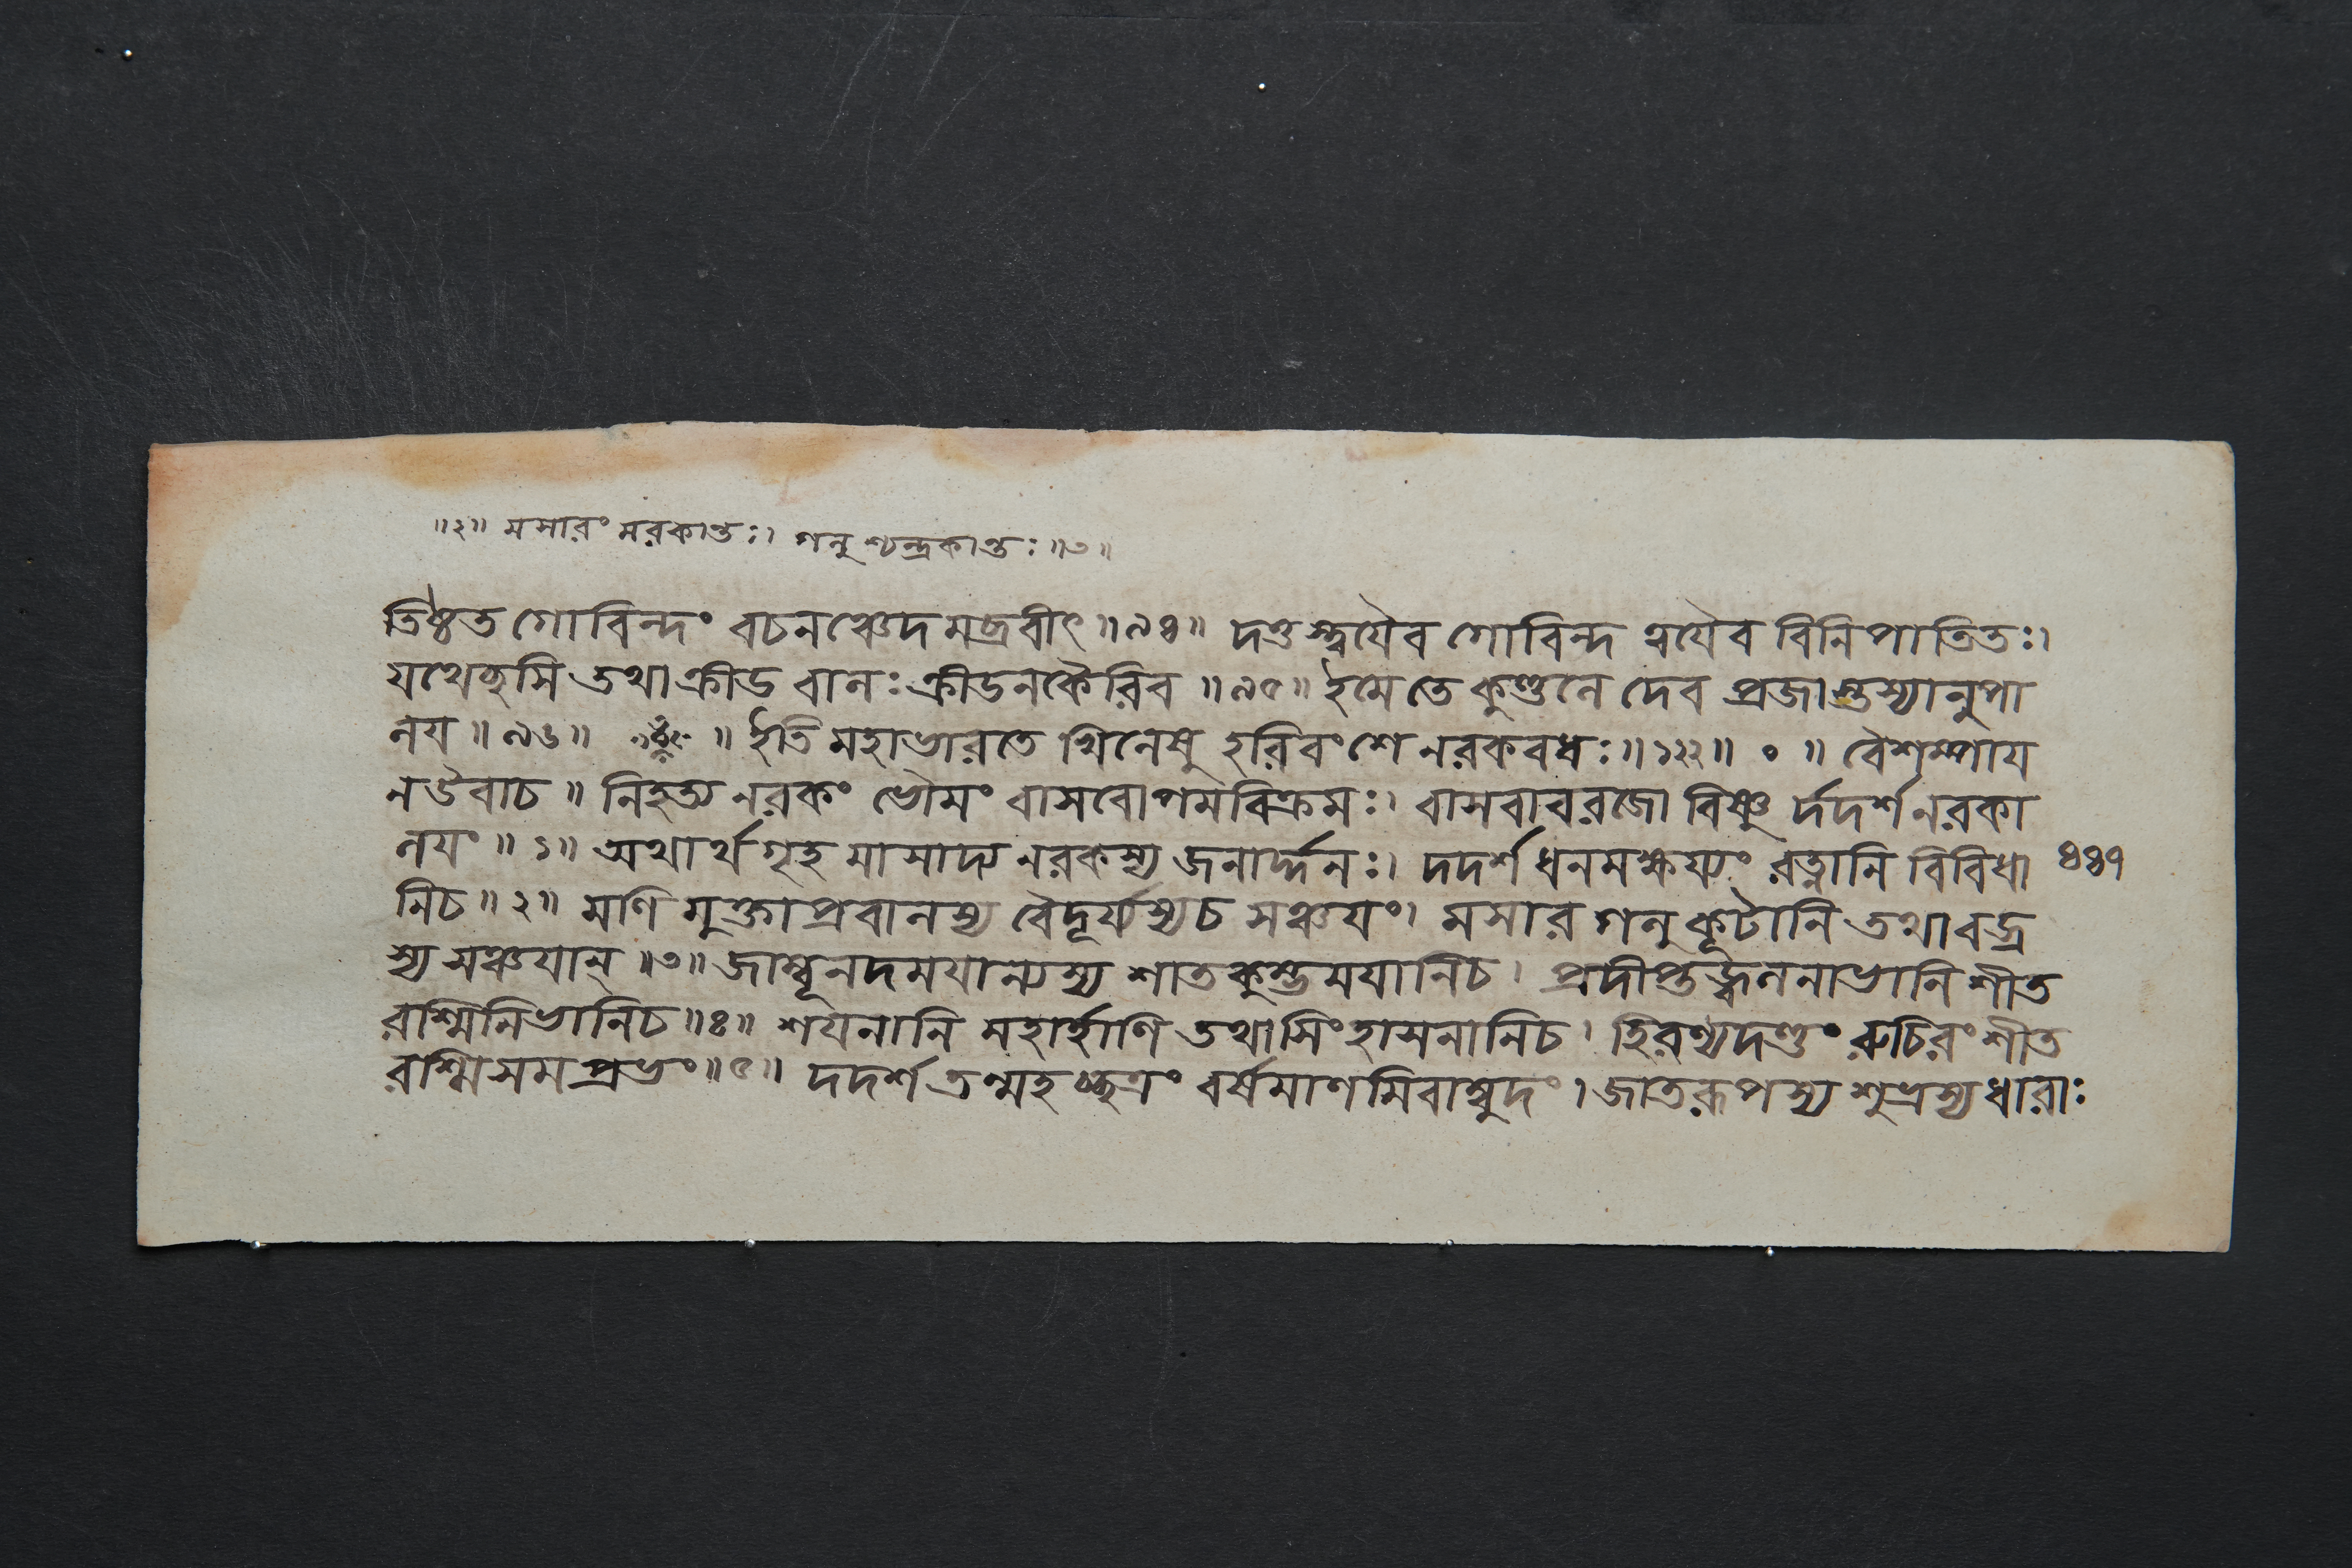 ॥২॥ মসারং মরকান্তঃ। গলু শ্চন্দ্রকান্তঃ॥৩॥
তিষ্ঠত গোবিন্দং বচনঞ্চেদ মব্রবীৎ॥৯৪॥ দত্ত স্ত্বযৈব গোবিন্দ ত্বযৈব বিনি পাতিতঃ।
যথেচ্ছসি তথা ক্রীড বালঃ ক্রীডনকৈরিব ॥৯৫॥ ইমে তে কুণ্ডলে দেব প্রজাস্তস্যানুপা
লয॥৯৬॥ ॥ ইতি মহাভারতে খিলেষু হরিবংশে নরকবধঃ॥১২২॥ ০ ॥ বৈশম্পায
ন উবাচ॥ নিহত্য নরকং ভৌমং বাসবোপমবিক্রমঃ। বাসবাবরজো বিষ্ণু র্দদর্শ নরকা
লযং॥১॥ অথার্থগৃহ মাসাদ্য নরকস্য জনার্দ্দনঃ। দদর্শ ধনমক্ষয্যং রত্নানি বিবিধা
৪৪৭
নিচ॥২॥ মণি মুক্তাপ্রবালস্য বৈদূর্য্যস্যচ সঞ্চযং। মসার গলুকূটানি তথা বজ্র
স্য সঞ্চযান্॥৩॥ জাম্বূনদমযান্যস্য শাতকুম্ভমযানিচ। প্রদীপ্তজ্বলনাভানি শীত
রাশ্মিনিভানিচ॥৪॥ শযনানি মহার্হাণি তথা সিংহাসনানিচ। হিরণ্যদণ্ডং রুচিরং শীত
রশ্মিসমপ্রভং॥৫॥ দদর্শ তন্মহচ্ছত্রং বর্ষমাণ মিবাম্বুদং। জাতরূপস্য শুভ্রস্য ধারাঃ